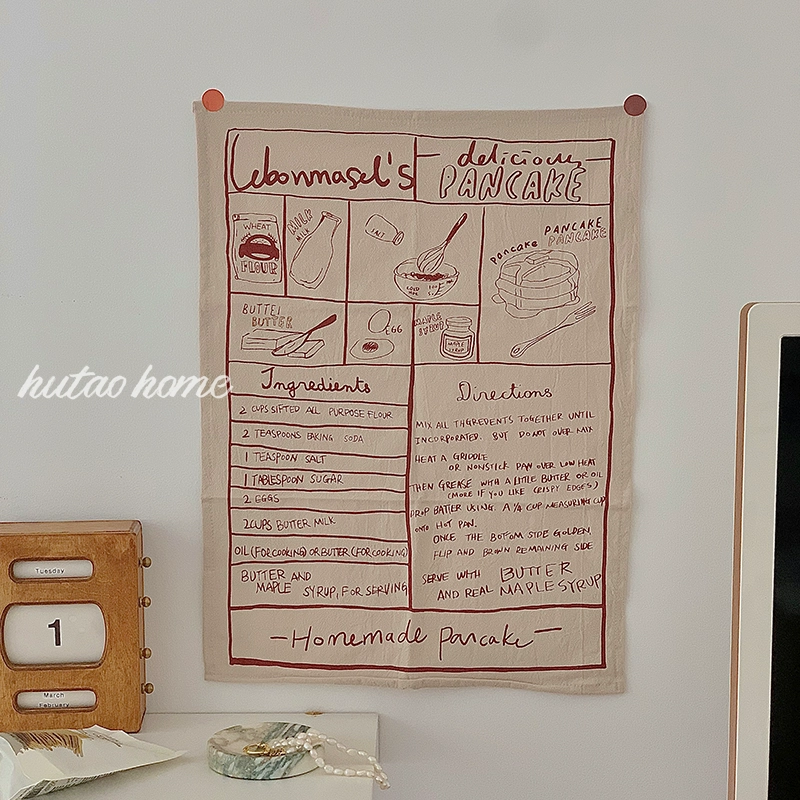 Lebonmasel's
delicious
PANCAKE
WHEAT
FLOUR
MILK
MILK
SALT
PANCAKE
pancake PANCAKE
BUTTER
BUTTER
EGG
MAPLE
SYRUP
MAPLE
SYRUP
hutao home
Ingredients
2 CUPS SIFTED ALL PURPOSE FLOUR
2 TEASPOONS BAKING SODA
1 TEASPOON SALT
1 TABLESPOON SUGAR
2 EGGS
2 CUPS BUTTER MILK
OIL (FOR COOKING) OR BUTTER (FOR COOKING)
BUTTER AND
MAPLE SYRUP, FOR SERVING
Directions
MIX ALL INGREDENTS TOGETHER UNTIL
INCORPORATED. BUT DO NOT OVER MIX
HEAT A GRIDDLE
OR NONSTICK PAN OVER LOW HEAT
THEN GREASE WITH A LITTLE BUTTER OR OIL
(MORE IF YOU LIKE CRISPY EDGES)
DROP BATTER USING A 1/4 CUP MEASURING CUP
ONTO HOT PAN.
ONCE THE BOTTOM SIDE GOLDEN,
FLIP AND BROWN REMAINING SIDE
SERVE WITH BUTTER
AND REAL MAPLE SYRUP
-Homemade pancake-
Tuesday
1
March
February